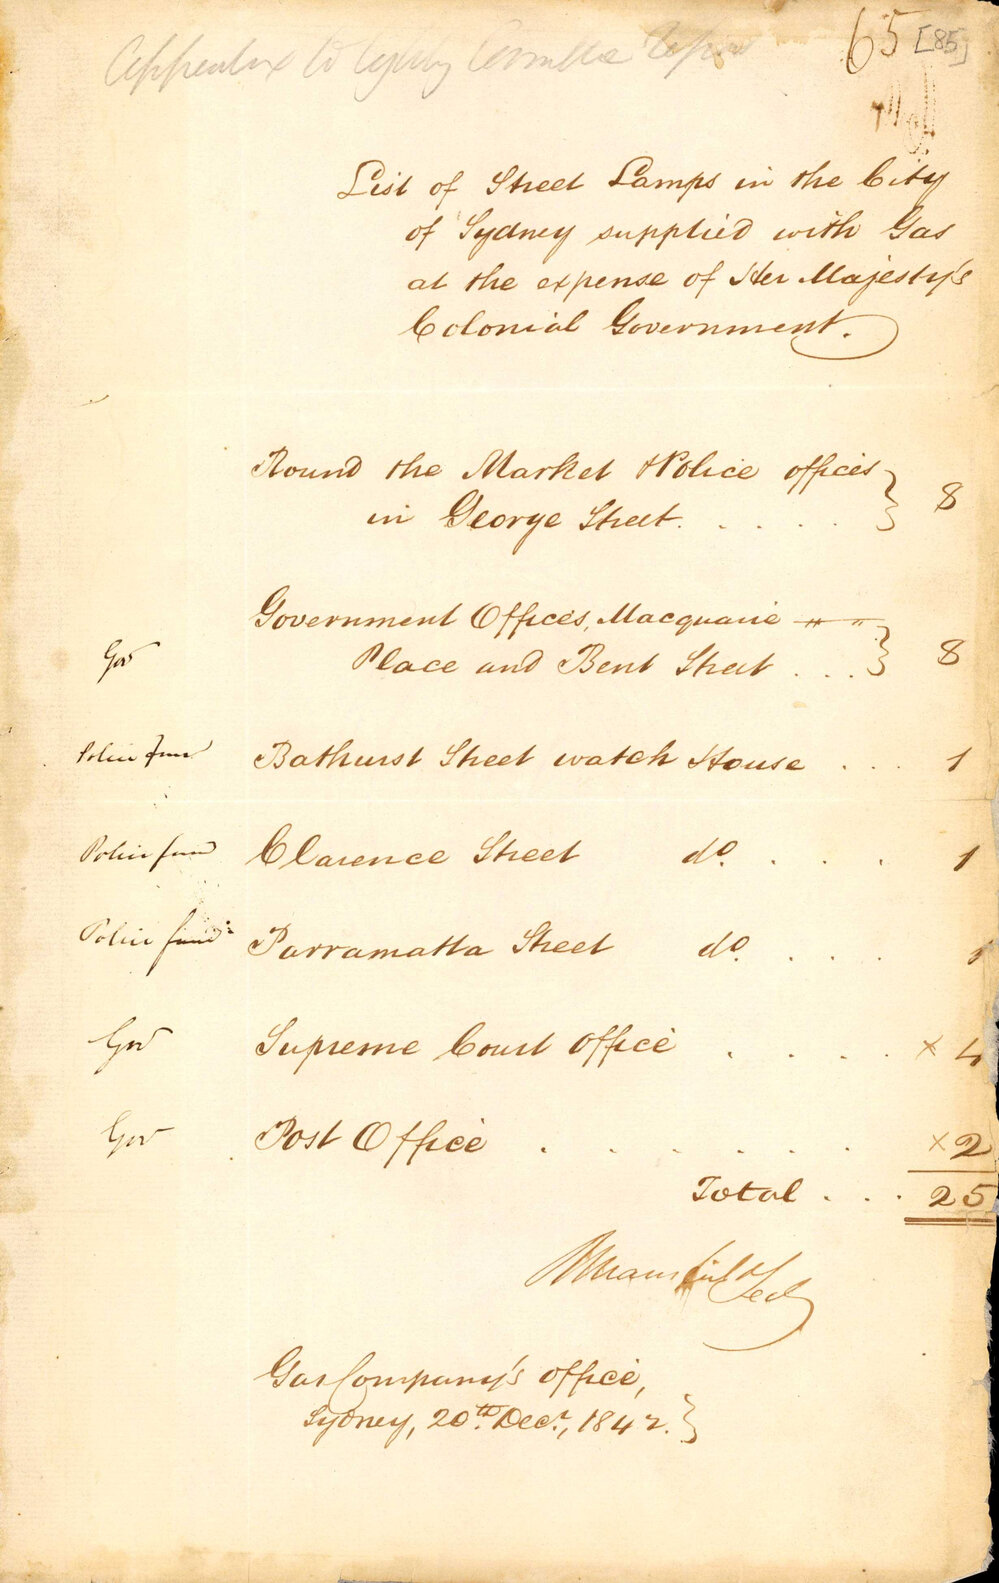 Appendix to Lighting Committee Report
65 [85]
List of Street Lamps in the City
of Sydney supplied with Gas
at the expense of Her Majesty's
Colonial Government.
Round the Market & Police offices
in George Street. . . . . 8
Government Offices, Macquarie
Gov Place and Bent Street . . . 8
Police fund Bathurst Street watch House . . . 1
Police fund Clarence Street do. . . . 1
Police fund Parramatta Street do. . . . 1
Gov Supreme Court Office . . . . × 4
Gov Post Office . . . . . . × 2
Total . . . 25
Mansfield Secy
Gas Company's office,
Sydney, 20th. Decr., 1842.